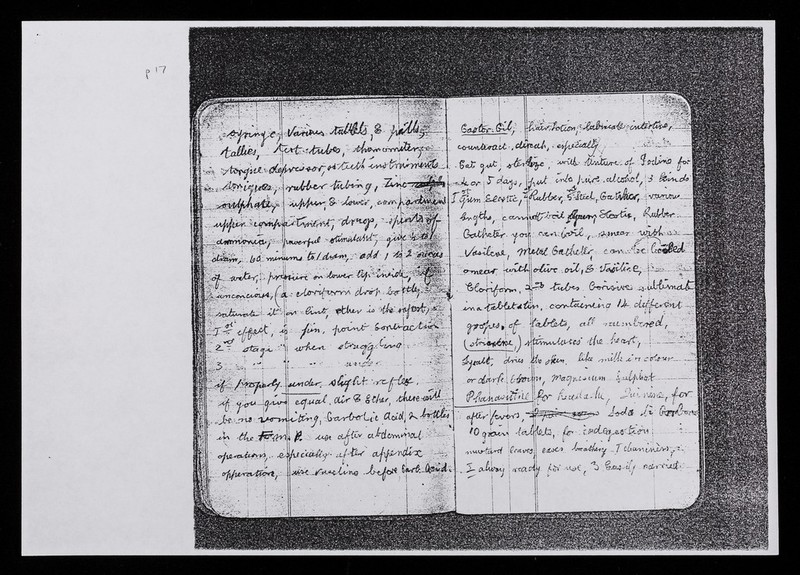 p 17
syringe, Various tablets, & pills,
tallies, test-tubes, thermometer,
tongue depressor, & teeth instruments
rubber tubing, Zinc
sulphate, upper, & lower, compartment
upper compartment, drugs, spirits of
ammonia, powerful stimulatist, give ½ a
dram, 60 minums to 1 dram, add 1 to 2 ounces
of water, pressure on lower lip inside, if
unconscious, (a cloriform drop bottle,
saturate it on lint, other is the safest,
1st effect, is fin, point Contraction
2nd stage " when struggling
3 " " under
if Properly under, slight reflex
if you give equal air & Ether, there will
be no vomiting, Carbolic Acid, 2 bottles
in the Form P. use after abdominal
operations, especially after appendix
opperation, use before Carb. Acid.
Castor Oil, hair lotion, lubricate intestine,
counteract, direah, especially
Cat gut, sterlize, with tinture of Iodine for
4 or 5 days, put into pure alcohol, 3 kinds
1 Gum Elastic, 2 Rubber, 3 Steel, Catheter, various
lengths, cannot boil Gum Elastic, Rubber
Catheter you can boil, smear with
Vasilene, Metal Catheter, can be boiled
smear with olive oil, & Vasiline,
Cloriform, 2-3 tubes Corisive sublimat
in a tablet a tin, containing 14 different
groopes, of tablets, all numbered,
stimulates the heart,
dries the skin, like milk in colour
or dark brown, Magnesium Sulphat
for headache, Quinine, for
after fevers, Soda Bi Carbone
10 grain tablets, for indegestion
mustard leaves, eases breathing
I alway ready for use, 3 Easily carried